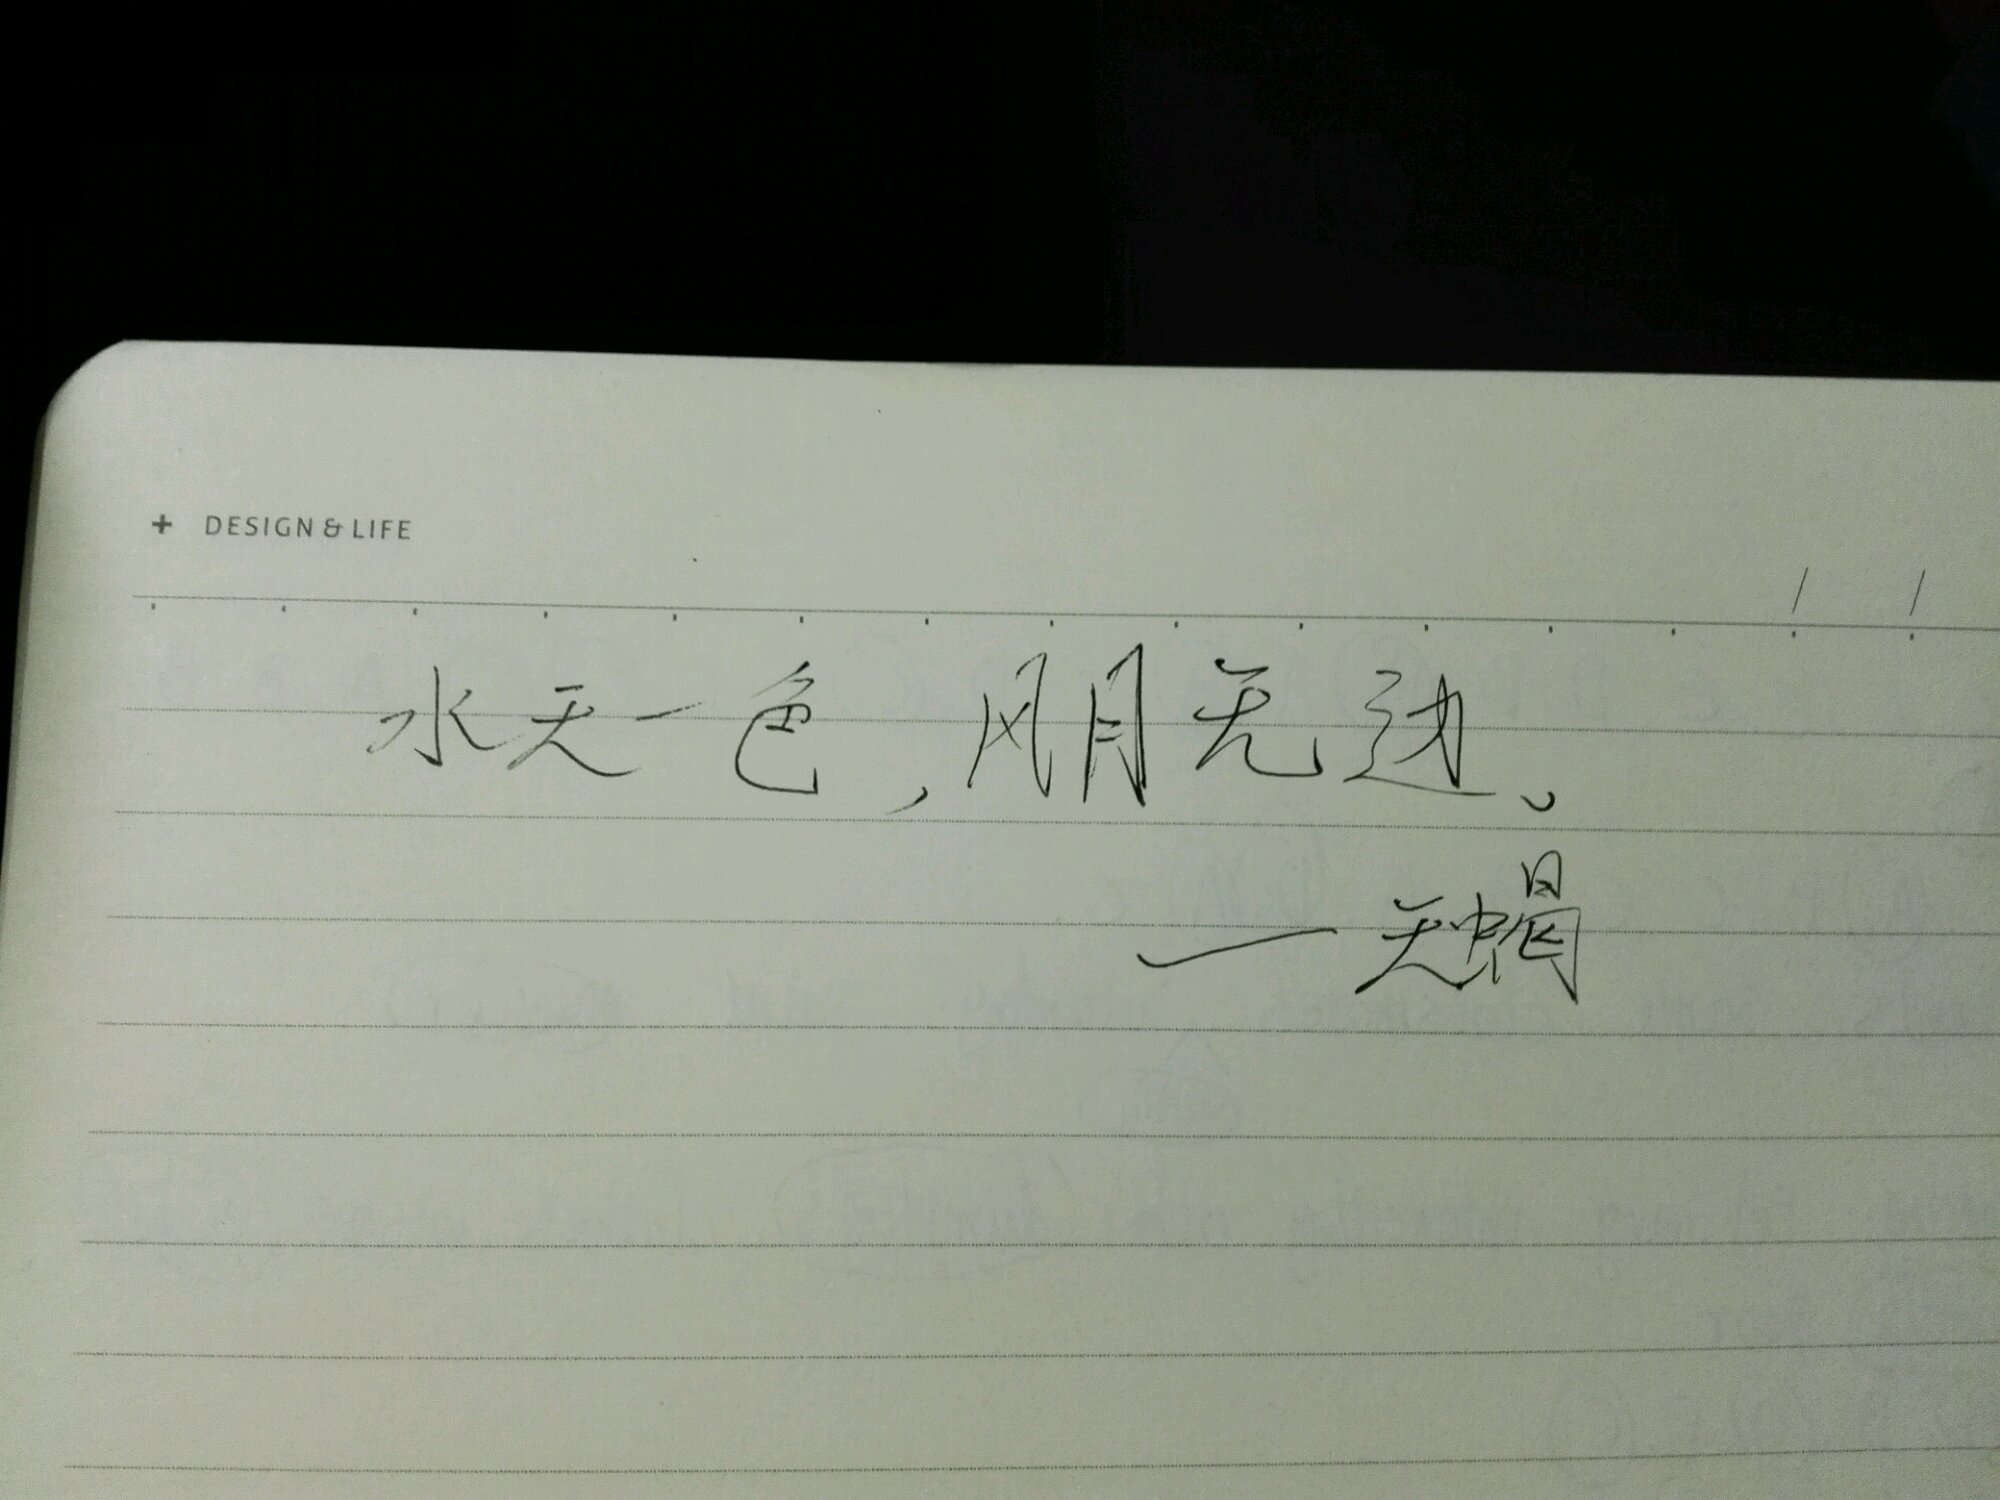 + DESIGN & LIFE
水天一色,风月无边。